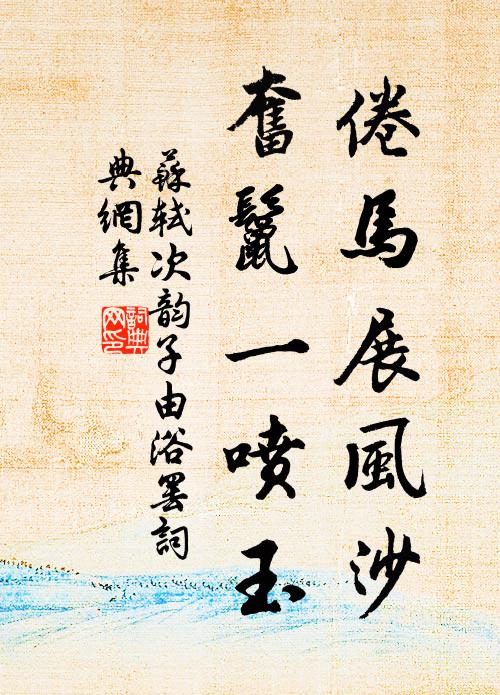 倦馬展風沙
奮鬣一噴玉
蘇軾次韵子由浴罷詞
典網集
詞典
网印